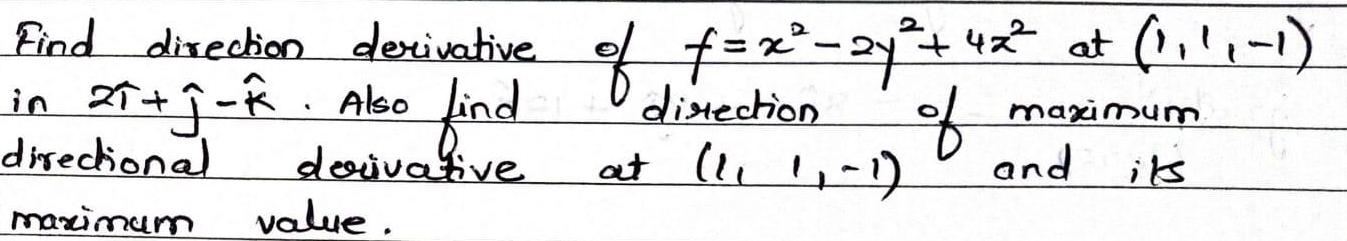 Find direction derivative of f = x² - 2y² + 4z² at (1, 1, -1)
in 2î + ĵ - k̂ . Also find direction of maximum
directional derivative at (1, 1, -1) and its
maximum value.